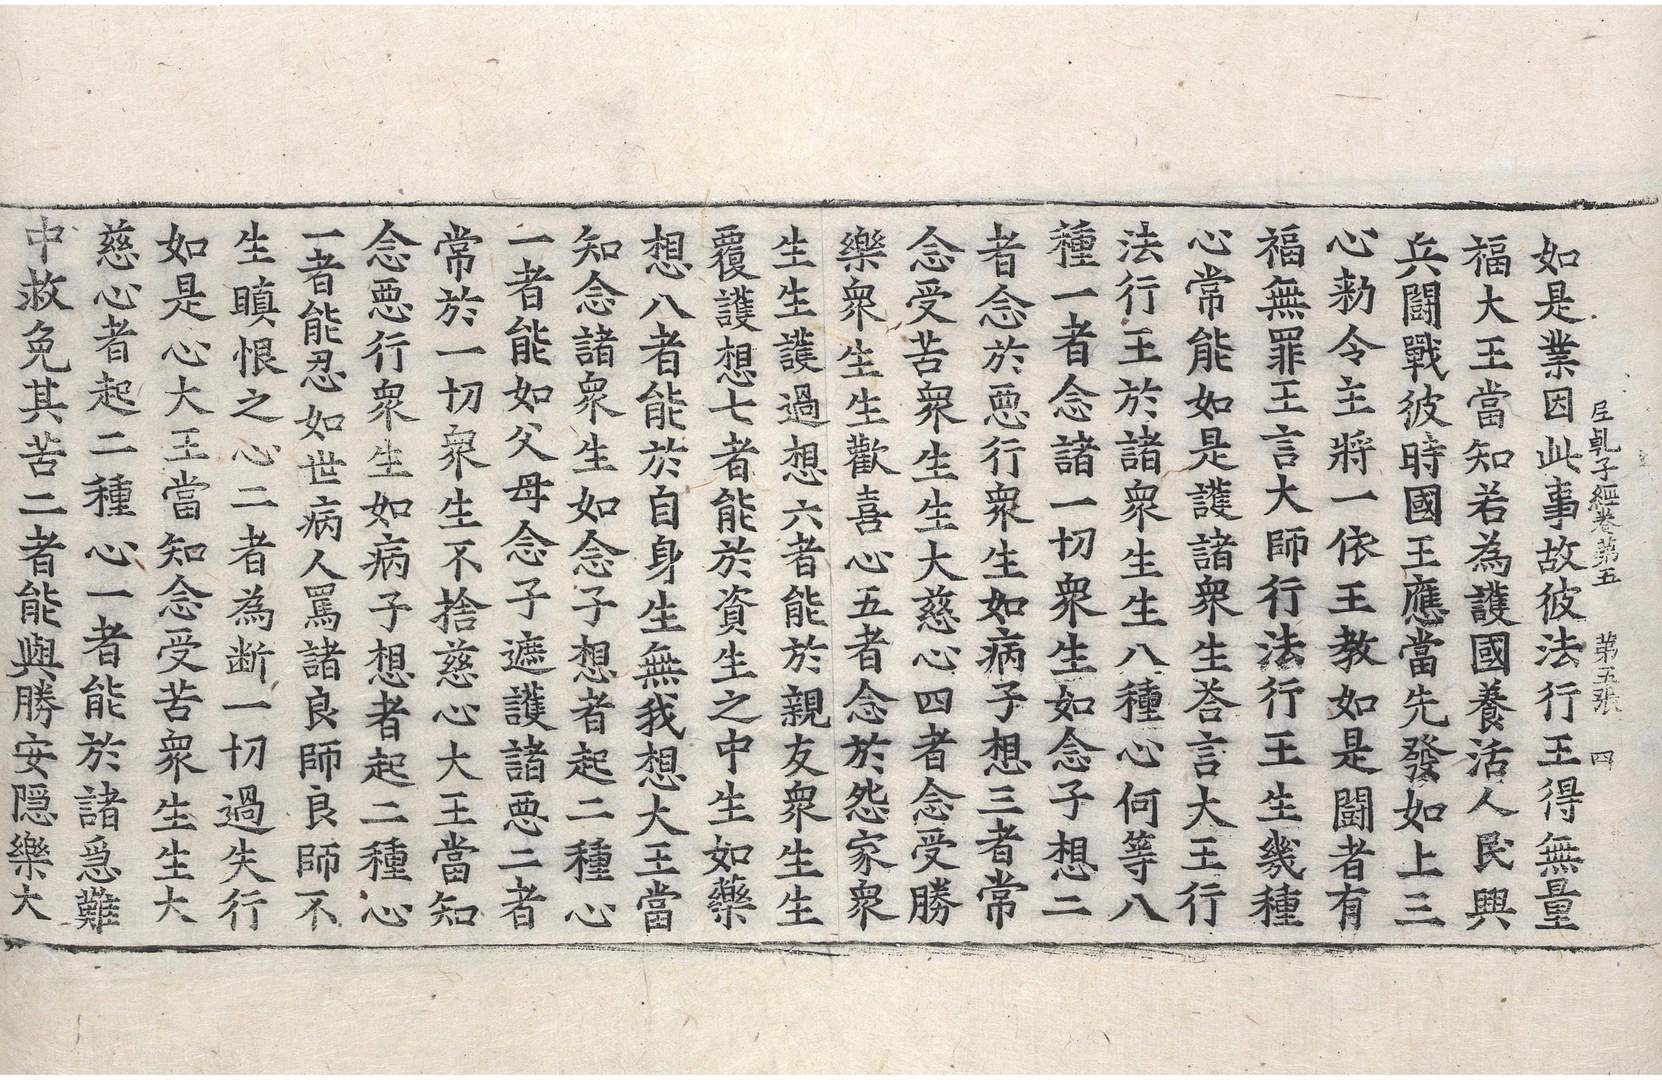 尼乹子經卷第五　第五張　四
如是業因此事故彼法行王得無量
福大王當知若為護國養活人民興
兵鬪戰彼時國王應當先發如上三
心勑令主將一依王教如是鬪者有
福無罪王言大師行法行王生幾種
心常能如是護諸衆生荅言大王行
法行王於諸衆生生八種心何等八
種一者念諸一切衆生如念子想二
者念於惡行衆生如病子想三者常
念受苦衆生生大慈心四者念受勝
樂衆生生歡喜心五者念於怨家衆
生生護過想六者能於親友衆生生
覆護想七者能於資生之中生如藥
想八者能於自身生無我想大王當
知念諸衆生如念子想者起二種心
一者能如父母念子遮護諸惡二者
常於一切衆生不捨慈心大王當知
念惡行衆生如病子想者起二種心
一者能忍如世病人罵諸良師良師不
生瞋恨之心二者為断一切過失行
如是心大王當知念受苦衆生生大
慈心者起二種心一者能於諸急難
中救免其苦二者能與勝安隠樂大